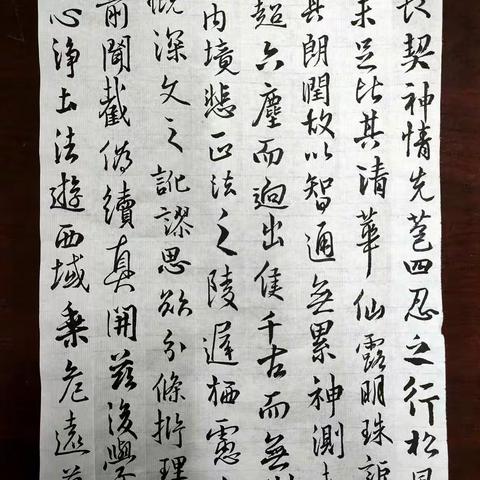 長契神情先苞四忍之行松風
未足比其清華仙露明珠詎
其朗潤故以智通無累神測未
超六塵而迥出隻千古而無對
內境悲正法之陵遲栖慮
慨深文之訛謬思欲分條析理
前聞截偽續真開茲後學
心淨土法遊西域乘危遠邁